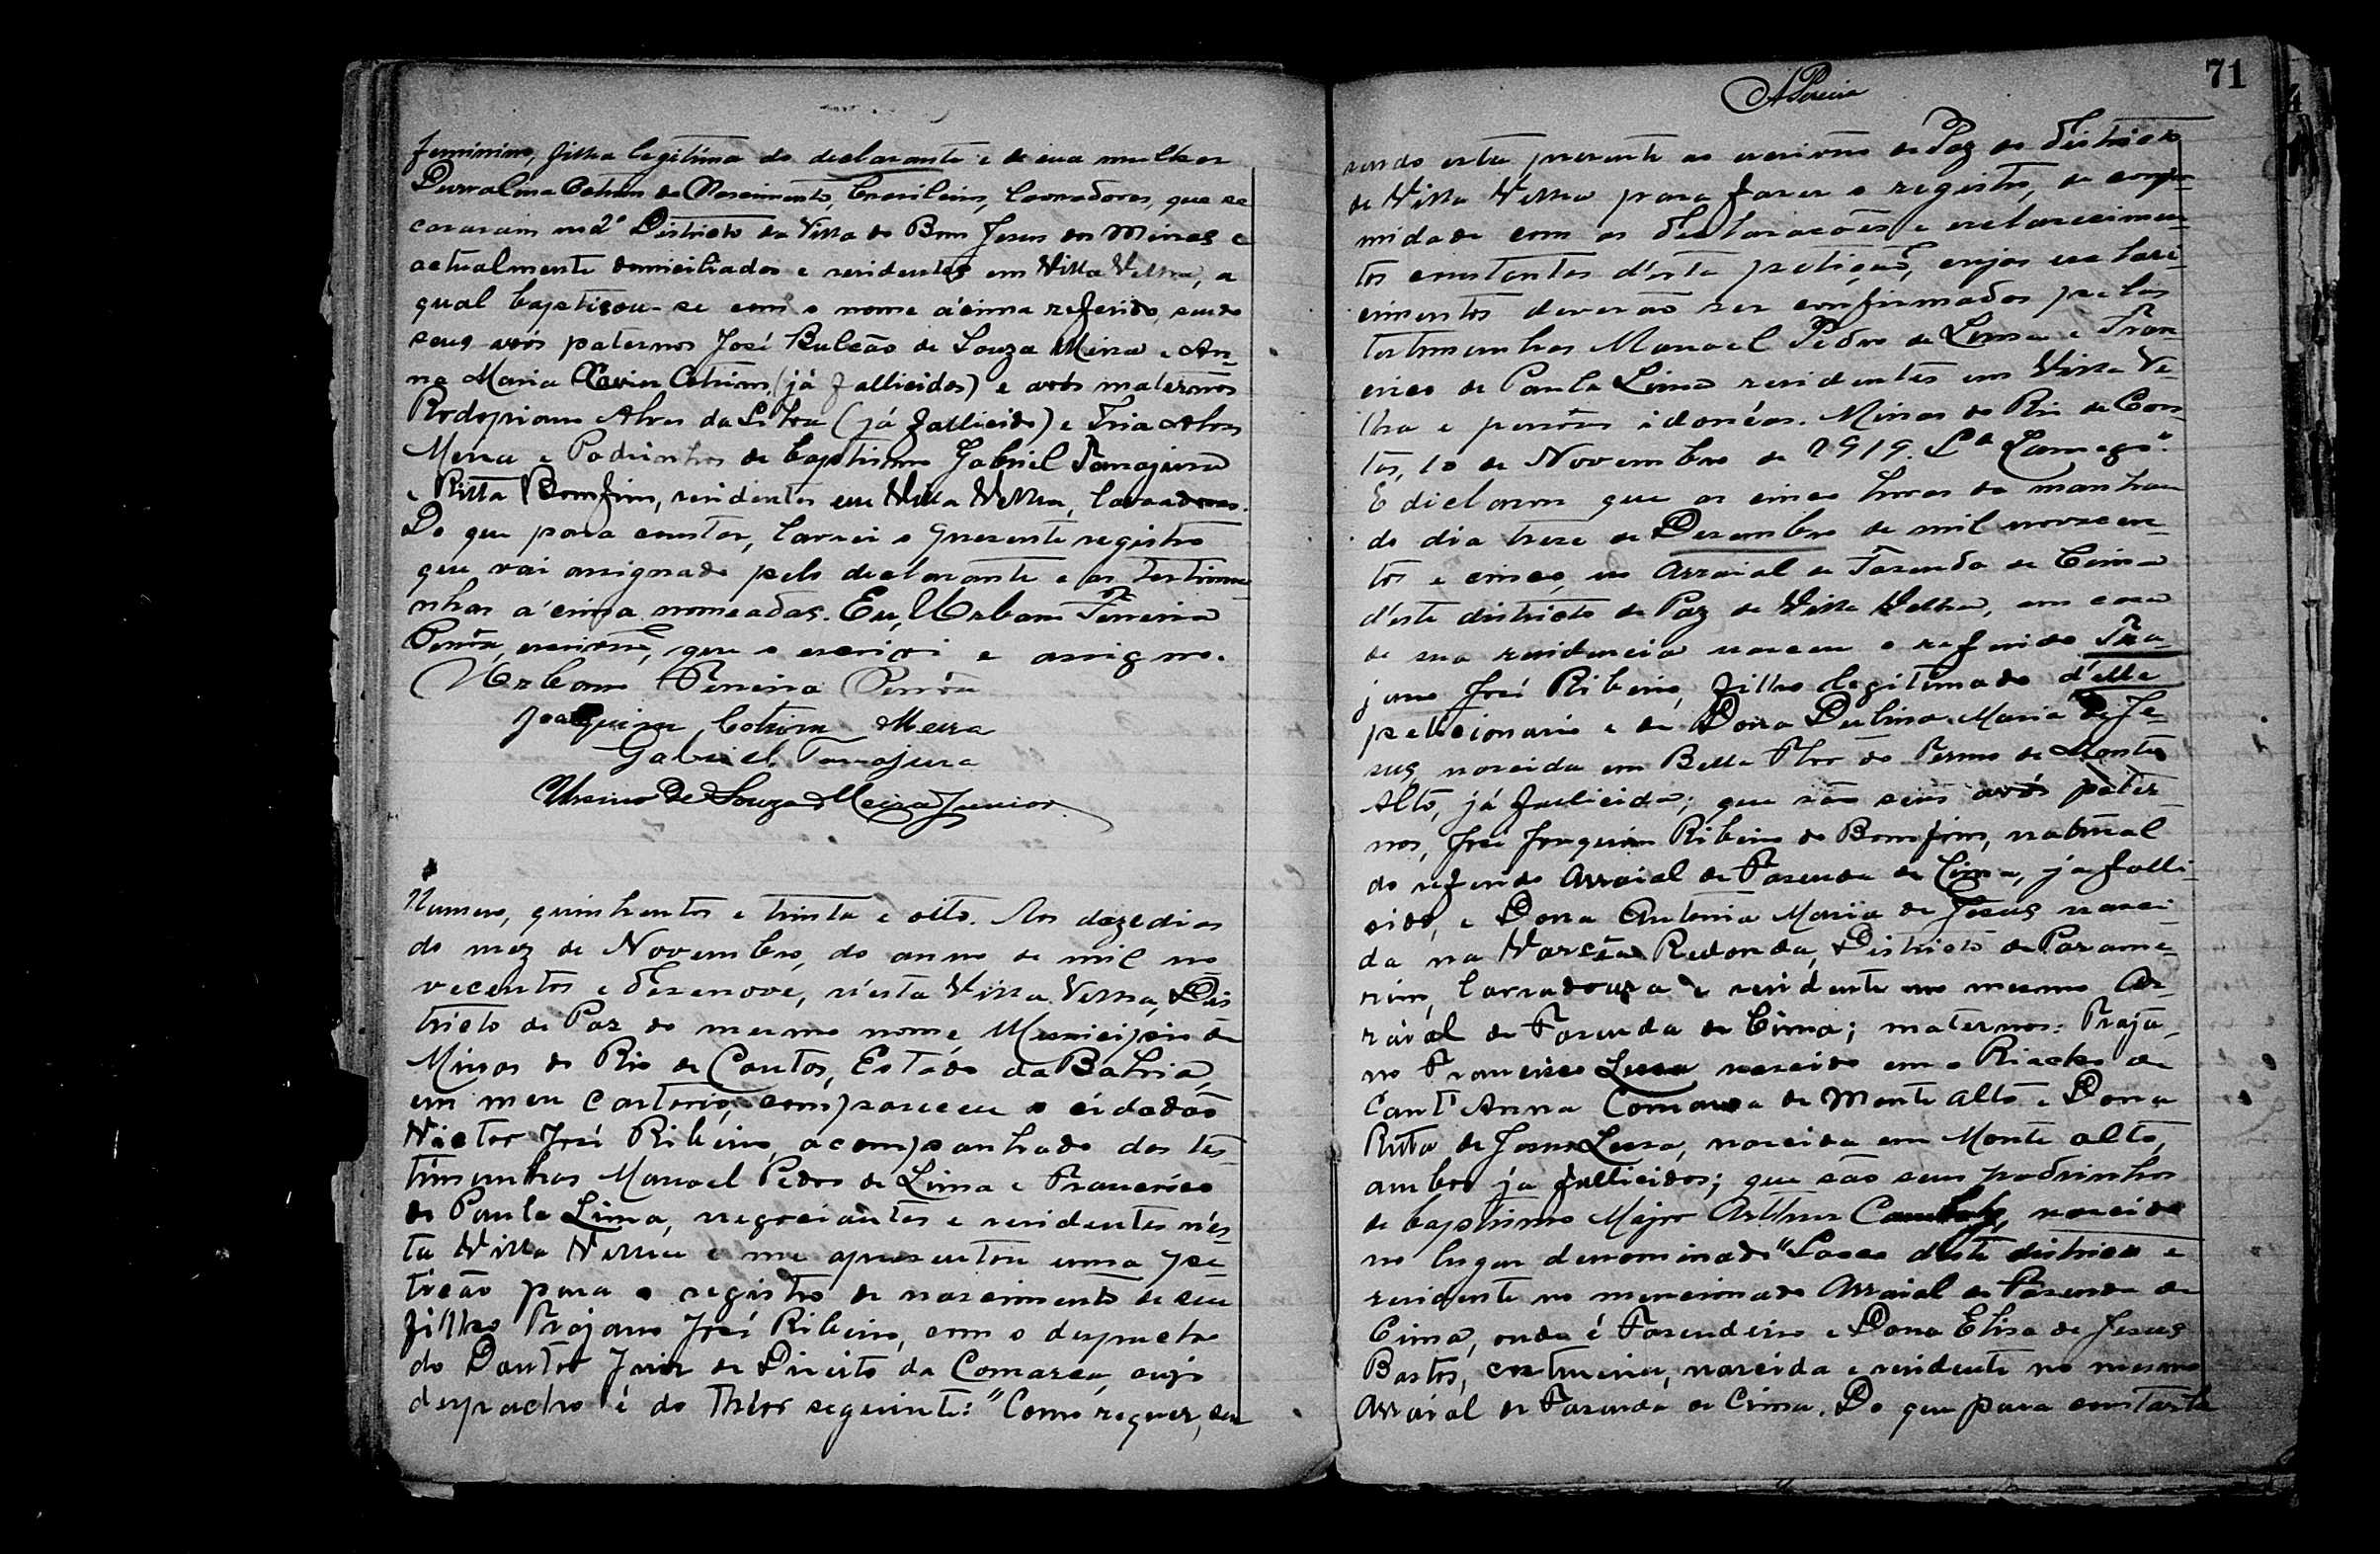 feminino, filha legitima do declarante e de sua mulher
Durvalina Cotrim do Nascimento, brasileiros, lavradores, que se
casaram no 2º Districto da Villa do Bom Jesus dos Meiras e
actualmente domiciliados e residentes em Villa Velha, a
qual baptisou-se com o nome acima referido, sendo
seus avós paternos José Bulcão de Souza Meira e An-
na Maria Xavier Cotrim, (já fallicidos) e avós maternos
Rodopiano Alves da Silva (já fallicido) e Alves
Meira e Padrinhos de baptismo Gabriel Tanajura
e Ritta Bomfim, residentes em Villa Velha, lavradores.
Do que para constar, lavrei o presente registro
que vai assignado pelo declarante e as testimu-
nhas acima nomeadas. Eu, Urbano Ferreira
escrivão, que o escrivi e assigno.
Urbano Ferreira
Joaquim Cotrim Meira
Gabriel Tanajura
Ursino de Souza Meira Junior
Numero, quinhentos e trinta e oito. Aos doze dias
do mez de Novembro, do anno de mil no
vecentos e dezenove, n'esta Villa Velha, Dis
tricto de Paz do mesmo nome, Municipio de
Minas do Rio de Contas, Estado da Bahia,
em meu cartorio, compareceu o cidadão
Victor José Ribeiro, acompanhado das tes-
timunhas Manoel Pedro de Lima e Francisco
de Paula Lima, negociantes e residentes n'es-
ta Villa Velha e me apresentou uma pe-
tição para o registro de nascimento de seu
filho Trajano José Ribeiro, com o despacho
do Doutor Juiz de Direito da Comarca, cujo
despacho é do theor seguinte: "Como requer, sen
71
APereira
sendo esta presente ao escrivão de Paz do Districto
de Villa Velha para fazer o registro, de confor-
midade com as declarações e esclarecimen-
tos constantes d'esta petição, cujos esclare-
cimentos deverão ser confirmados pelas
testimunhas Manoel Pedro de Lima e Fran
cisco de Paula Lima residentes em Villa Ve-
lha e pessôas idonéas. Minas do Rio de Con-
tas, 10 de Novembro de 1919. Lamego".
E declarou que as cinco horas da manhan
do dia treze de Dezembro de mil novecen-
tos e cinco, no Arraial de Fazenda de Cima
d'este districto de Paz de Villa Velha, em casa
de sua residencia nasceu o referido Tra-
jano José Ribeiro, filho legitimado d'elle
peticionario e de Dona Dulina Maria de Je-
sus, nascida em Bella Flor do Termo de Monte
Alto, já fallicida; que são seus avós pater-
nos, José Joaquim Ribeiro do Bomfim, natural
do referido Arraial de Fazenda de Cima, já falli-
cido, e Dona Antonia Maria de Jesus nasci-
da na Varzea Redonda, Districto de Parame-
rim, lavradoura e residente no mesmo Ar-
raial de Fazenda de Cima; maternos: Traja-
no Francisco Lessa nascido em o Riacho de
Sant'Anna Comarca de Monte Alto e Dona
Ritta de Jesus Lessa, nascida em Monte alto,
ambos já fallicidos; que são seus padrinhos
de baptismo Major Arthur, nascido
no lugar denominado "Lacco d'este districto e
residente no mencionado Arraial de Fazenda de
Cima, onde é Fazendeiro e Dona Elisa de Jesus
Bastos, costureira, nascida e residente no mesmo
Arraial de Fazenda de Cima. Do que para constar